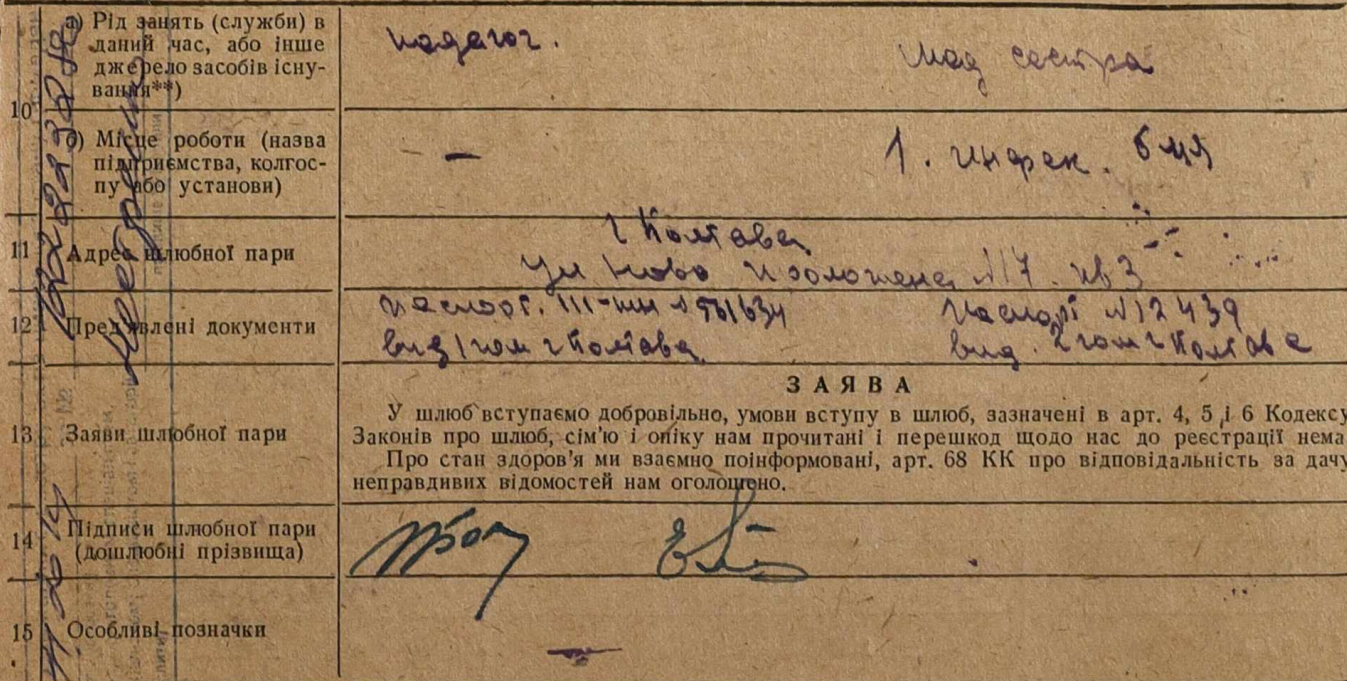 10
а) Рід занять (служби) в
даний час, або інше
джерело засобів існу-
вання**)
педагог.
мед сестра
б) Місце роботи (назва
підприємства, колгос-
пу або установи)
—
1. инфек.
11
Адрес шлюбної пари
г Полтава
ул Ново №17 кв 3
12
Пред'явлені документи
паспорт.
вид 1 гом г Полтава
паспорт №12439
вид. 2 гом г Полтава
13
Заяви шлюбної пари
ЗАЯВА
У шлюб вступаємо добровільно, умови вступу в шлюб, зазначені в арт. 4, 5 і 6 Кодексу
Законів про шлюб, сім'ю і опіку нам прочитані і перешкод щодо нас до реєстрації нема
Про стан здоров'я ми взаємно поінформовані, арт. 68 КК про відповідальність за дачу
неправдивих відомостей нам оголошено.
14
Підписи шлюбної пари
(дошлюбні прізвища)
15
Особливі позначки